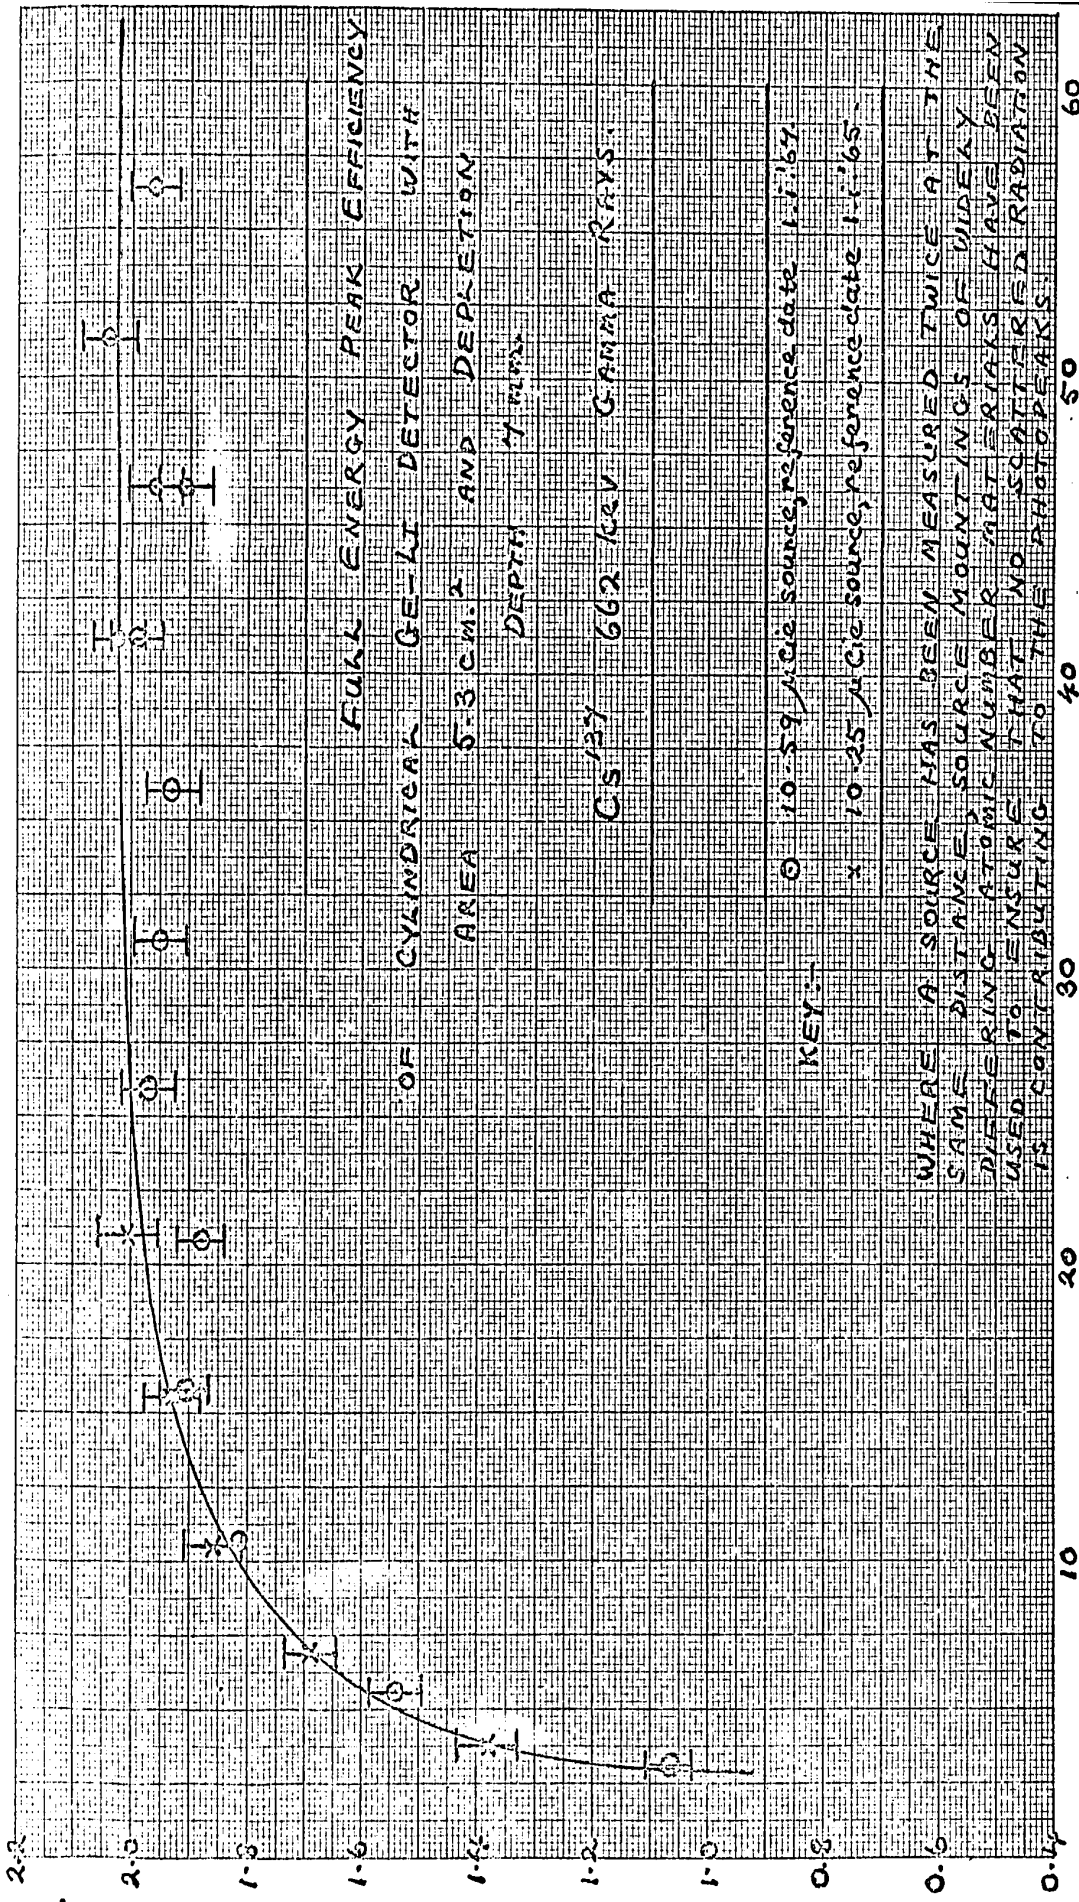 FULL ENERGY PEAK EFFICIENCY
OF CYLINDRICAL GE-LI DETECTOR WITH
AREA 5.3 cm.² AND DEPLETION
DEPTH 7 mm.
Cs¹³⁷ 662 keV GAMMA RAYS.
KEY:-
⊙ 10.59 μCie source, reference date 1.1.'64.
x 10.25 μCie source, reference date 1.1.'65.
WHERE A SOURCE HAS BEEN MEASURED TWICE AT THE
SAME DISTANCE, SOURCE MOUNTINGS OF WIDELY
DIFFERING ATOMIC NUMBER MATERIALS HAVE BEEN
USED TO ENSURE THAT NO SCATTERED RADIATION
IS CONTRIBUTING TO THE PHOTOPEAKS.
2.2
2.0
1.8
1.6
1.4
1.2
1.0
0.8
0.6
0.4
10 20 30 40 50 60